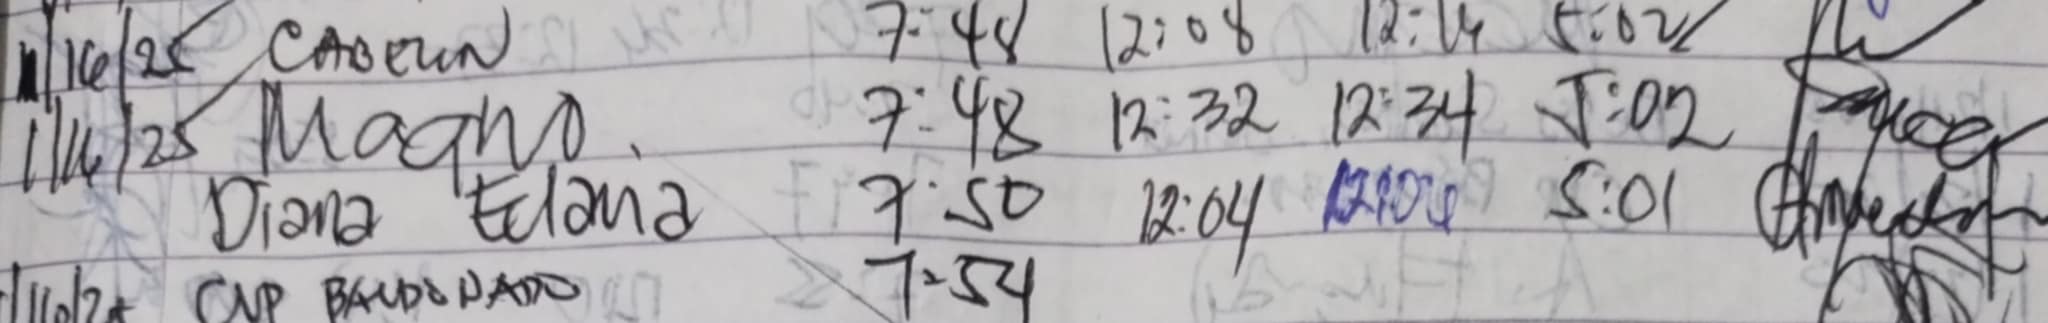 1/16/25 CABEUN 7:48 12:08 12:14 5:02
1/16/25 Magno. 7:48 12:32 12:34 5:02
Diana 7:50 12:04 5:01
1/16/25 CVP BALDONADO 7:54